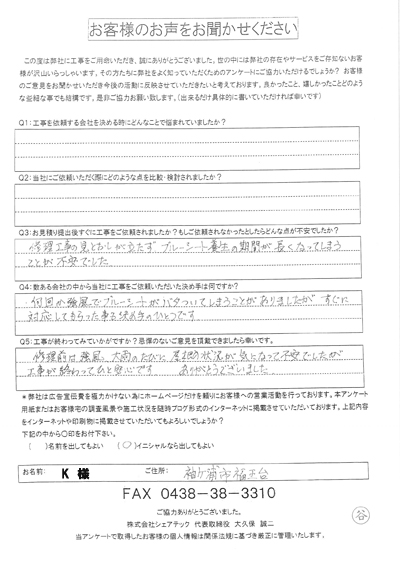 お客様のお声をお聞かせください
この度は弊社に工事をご用命いただき、誠にありがとうございました。世の中には弊社の存在やサービスをご存知ないお客様が
沢山いらっしゃいます。その方たちに弊社をよく知っていただくためのアンケートにご協力いただけるでしょうか？ お客様
のご意見をお聞かせいただき今後の活動に反映させていただきたいと考えております。良かったこと、嬉しかったことどのよう
な些細な事でも結構です。是非ご協力お願い致します。(出来るだけ具体的に書いていただければ幸いです)
Q1:工事を依頼する会社を決める時にどんなことで悩まれていましたか？
Q2:当社にご依頼いただく際にどのような点を比較・検討されましたか？
Q3:お見積り提出後すぐに工事をご依頼されましたか？もしご依頼されなかったとしたらどんな点が不安でしたか？
修理工事の見とおしが立たず ブルーシート養生の期間が長くなってしまう
ことが不安でした
Q4:数ある会社の中から当社に工事をご依頼いただいた決め手は何ですか？
何回か強風でブルーシートがバタついてしまうことがありましたが すぐに
対応してもらった事も決め手のひとつです
Q5:工事が終わってみていかがですか？忌憚のないご意見を頂戴できましたら幸いです。
修理前は強風、大雨のたびに屋根の状況が気になって不安でしたが
工事が終わってひと安心です ありがとうございました
＊弊社は広告宣伝費を極力かけない為にホームページだけを頼りにお客様への営業活動を行っております。本アンケート
用紙またはお客様宅の調査風景や施工状況を随時ブログ形式のインターネットに掲載させていただいております。上記内容
をインターネットや印刷物に掲載させていただいてもよろしいでしょうか？
下記の中から〇印をお付下さい。
( )名前を出してもよい (〇)イニシャルなら出してもよい
お名前: K 様 ご住所: 袖ケ浦市福王台
FAX 0438-38-3310
ご協力ありがとうございました。
株式会社シェアテック 代表取締役 大久保 誠二
当アンケートで取得したお客様の個人情報は関係法規に基づき厳正に管理いたします。
谷